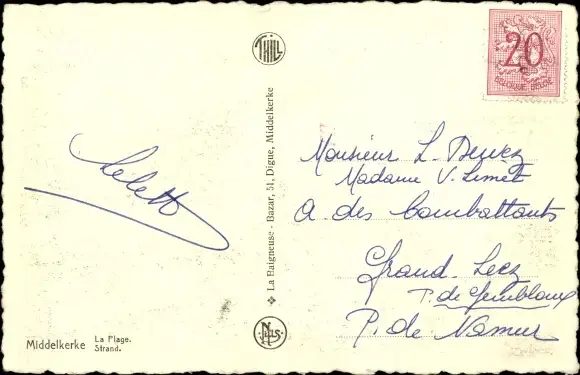 THILL
20
BELGIQUE-BELGIE
La Baigneuse - Bazar, 51, Digue, Middelkerke
Monsieur L. Dewez
Madame V. Limet
A. des Combattants
Grand-Leez
P. de Gembloux
P. de Namur
NELS
Middelkerke La Plage.
Strand.